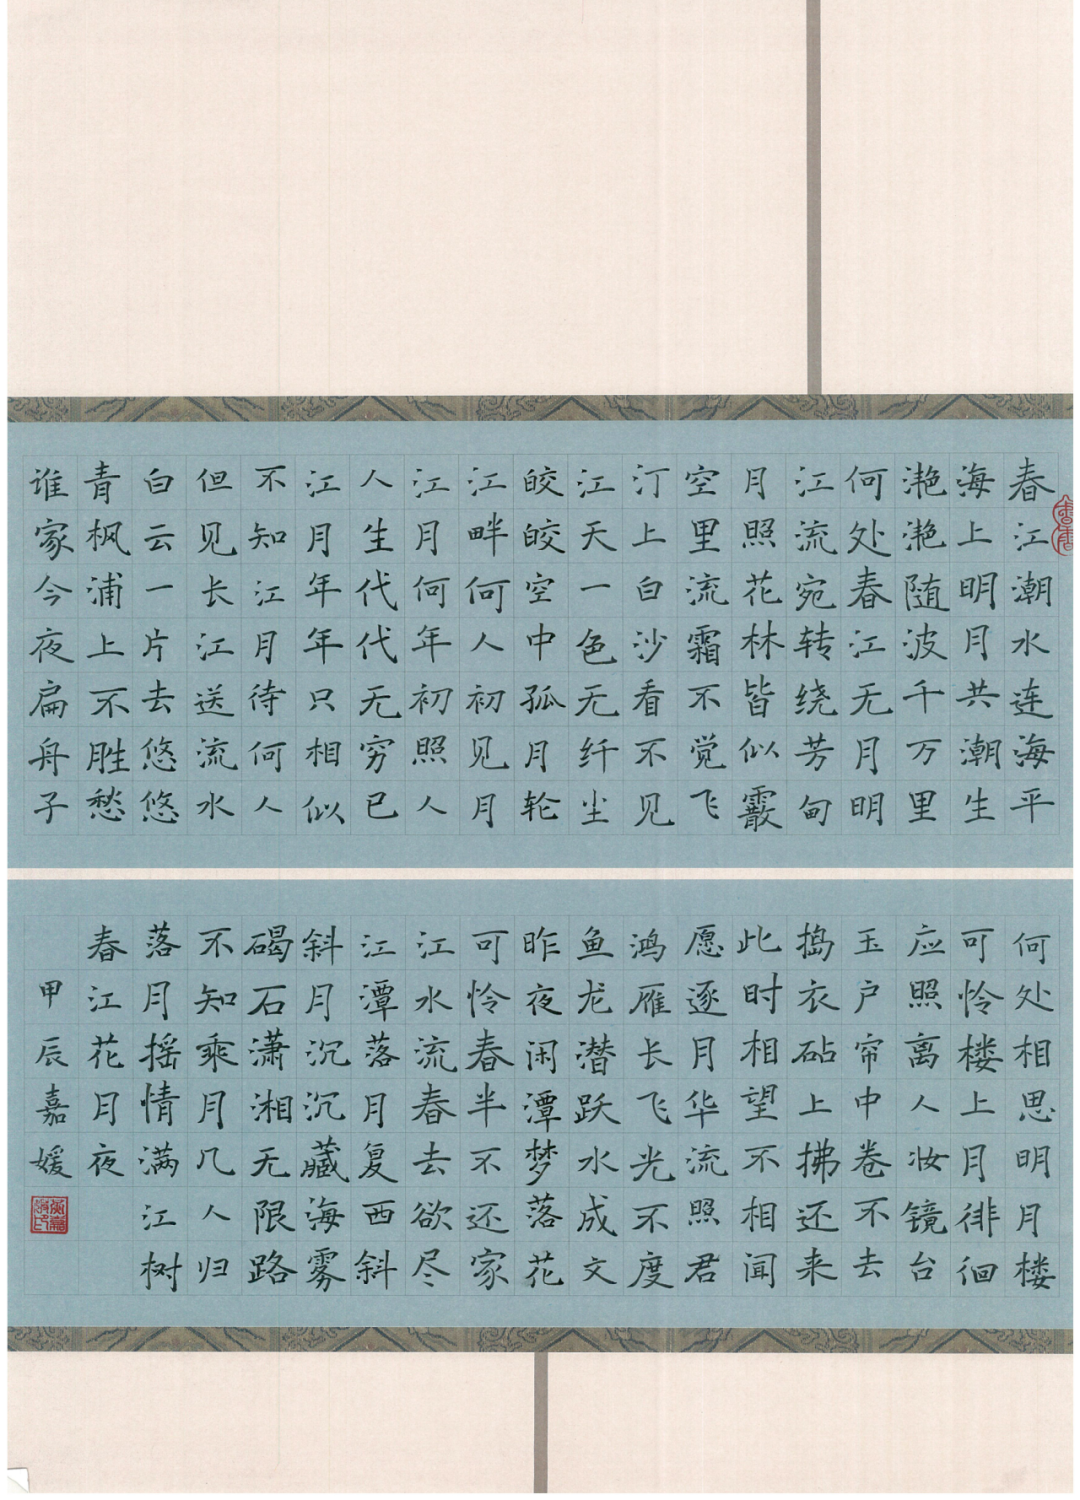 春江潮水连海平
海上明月共潮生
滟滟随波千万里
何处春江无月明
江流宛转绕芳甸
月照花林皆似霰
空里流霜不觉飞
汀上白沙看不见
江天一色无纤尘
皎皎空中孤月轮
江畔何人初见月
江月何年初照人
人生代代无穷已
江月年年只相似
不知江月待何人
但见长江送流水
白云一片去悠悠
青枫浦上不胜愁
谁家今夜扁舟子
何处相思明月楼
可怜楼上月徘徊
应照离人妆镜台
玉户帘中卷不去
捣衣砧上拂还来
此时相望不相闻
愿逐月华流照君
鸿雁长飞光不度
鱼龙潜跃水成文
昨夜闲潭梦落花
可怜春半不还家
江水流春去欲尽
江潭落月复西斜
斜月沉沉藏海雾
碣石潇湘无限路
不知乘月几人归
落月摇情满江树
春江花月夜
甲辰嘉媛